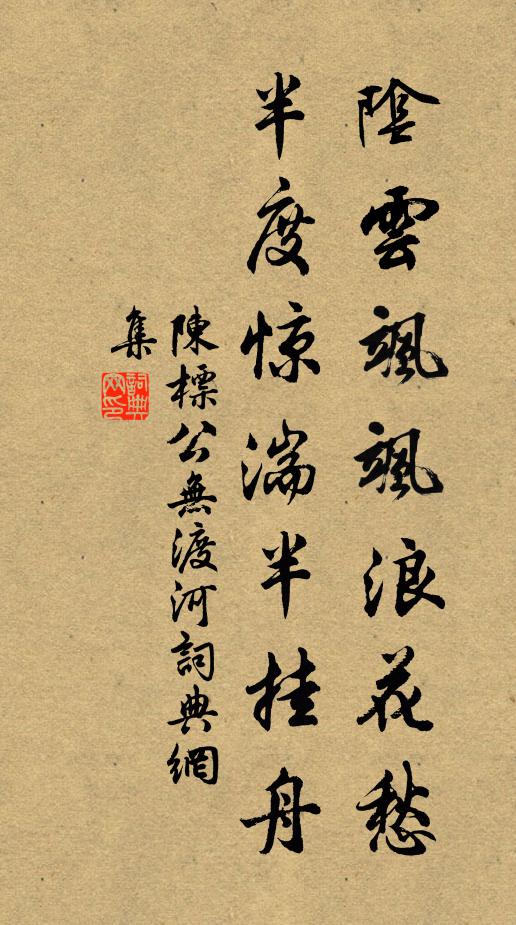 陰雲颯颯浪花愁
半度惊湍半挂舟
陳標公無渡河詞典網
集
詞典网印